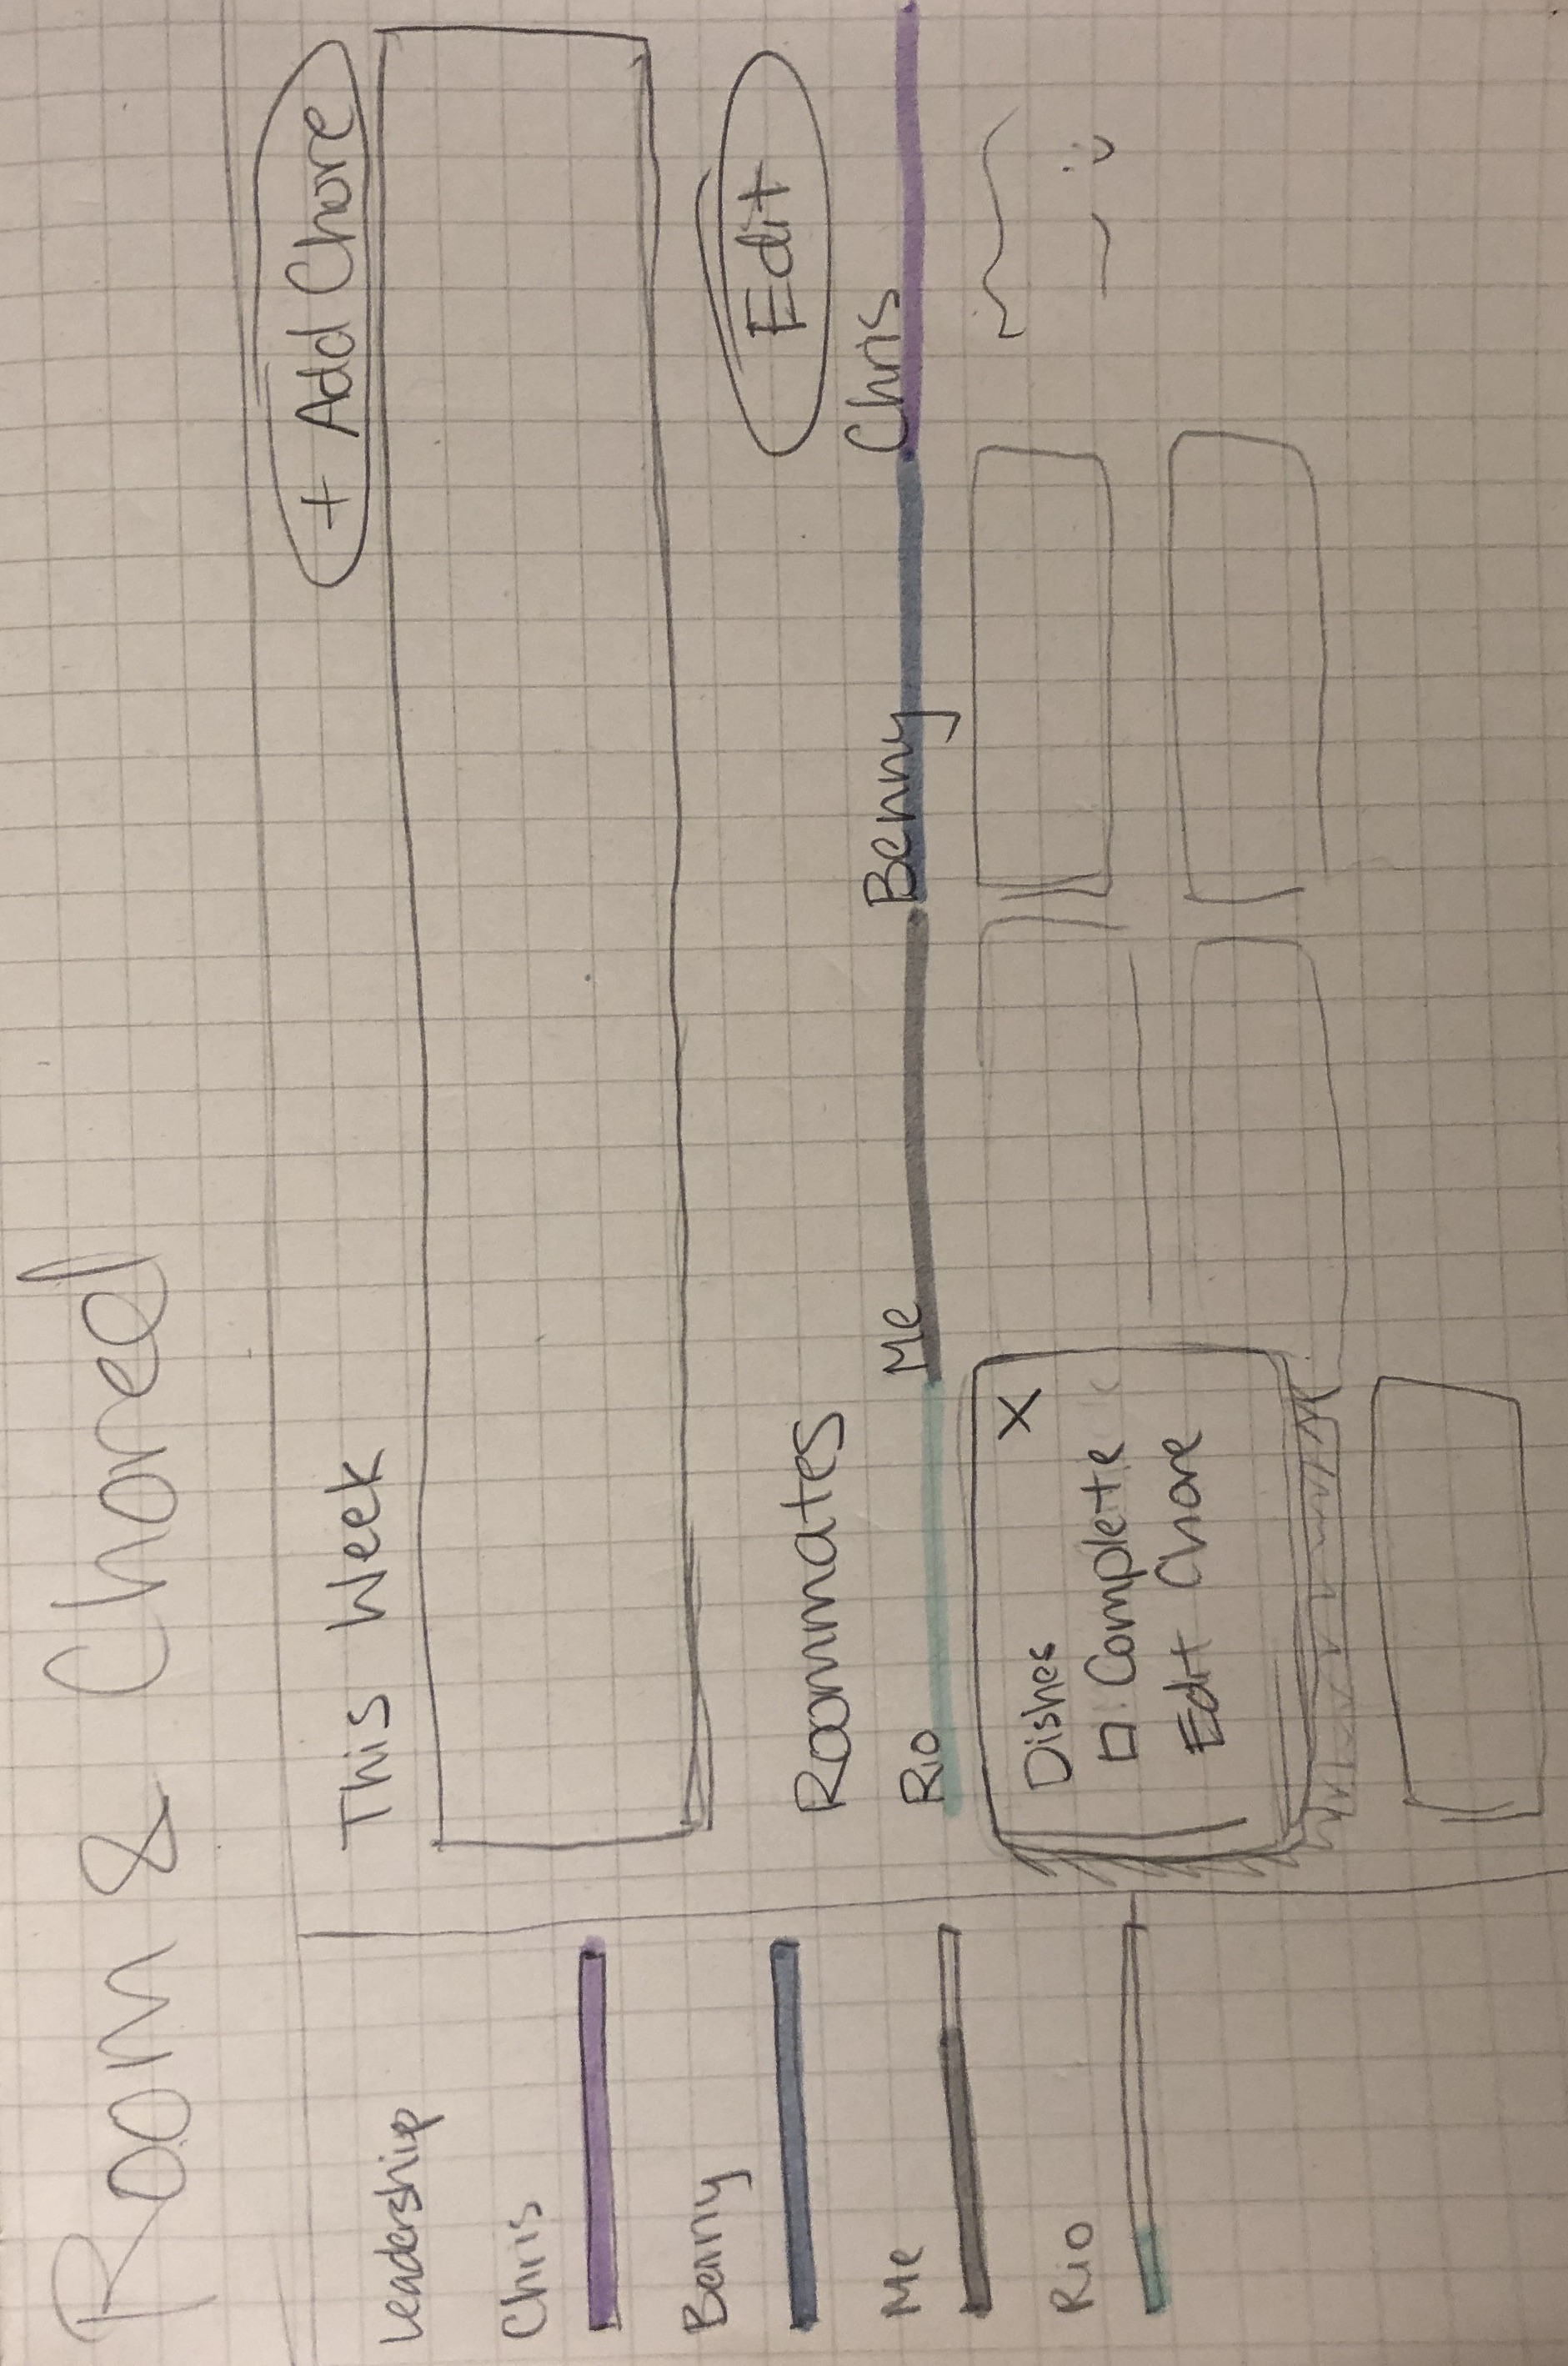 Room & Chored
Leadership
Chris
Benny
Me
Rio
This Week
+ Add Chore
Roommates
Edit
Rio
Me
Benny
Chris
Dishes X
Complete
Edit Chore